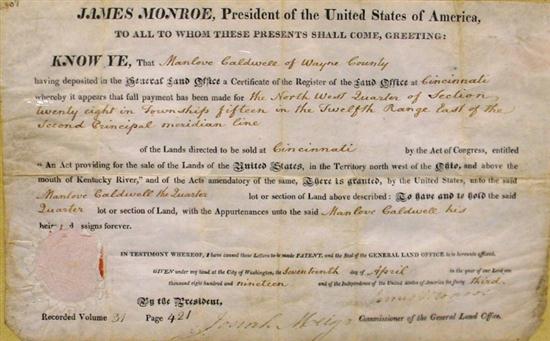 JAMES MONROE, President of the United States of America,
TO ALL TO WHOM THESE PRESENTS SHALL COME, GREETING:
KNOW YE, That Manlove Caldwell of Wayne County
having deposited in the General Land Office a Certificate of the Register of the Land Office at Cincinnati
whereby it appears that full payment has been made for the North West Quarter of Section
twenty eight in Township fifteen in the Twelfth Range East of the
Second Principal meridian line
of the Lands directed to be sold at Cincinnati by the Act of Congress, entitled
"An Act providing for the sale of the Lands of the United States, in the Territory north west of the Ohio, and above the
mouth of Kentucky River," and of the Acts amendatory of the same, There is granted, by the United States, unto the said
Manlove Caldwell the Quarter lot or section of Land above described: To have and to hold the said
Quarter lot or section of Land, with the Appurtenances unto the said Manlove Caldwell his
heirs ssigns forever.
IN TESTIMONY WHEREOF, I have caused these Letters to be made PATENT, and the Seal of the GENERAL LAND OFFICE to be hereunto affixed.
GIVEN under my hand at the City of Washington, the Seventeenth day of April in the year of our Lord one
thousand eight hundred and nineteen and of the Independence of the United States of America the forty third.
By the President,
Josiah Meigs Commissioner of the General Land Office.
Recorded Volume 31 Page 421